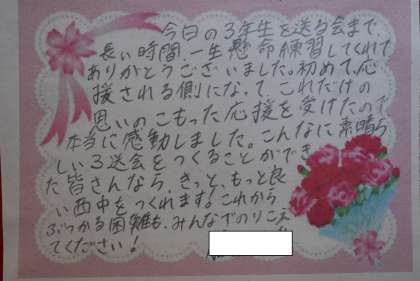 今日の3年生を送る会まで、
長い時間、一生懸命練習してくれて
ありがとうございました。初めて、応
援される側になって、これだけの
思いのこもった応援を受けたので
本当に感動しました。こんなに素晴ら
しい3送会をつくることができ
た皆さんなら、きっと、もっと良
い西中をつくれます。これから
ぶつかる困難も、みんなでのりこえ
てください!